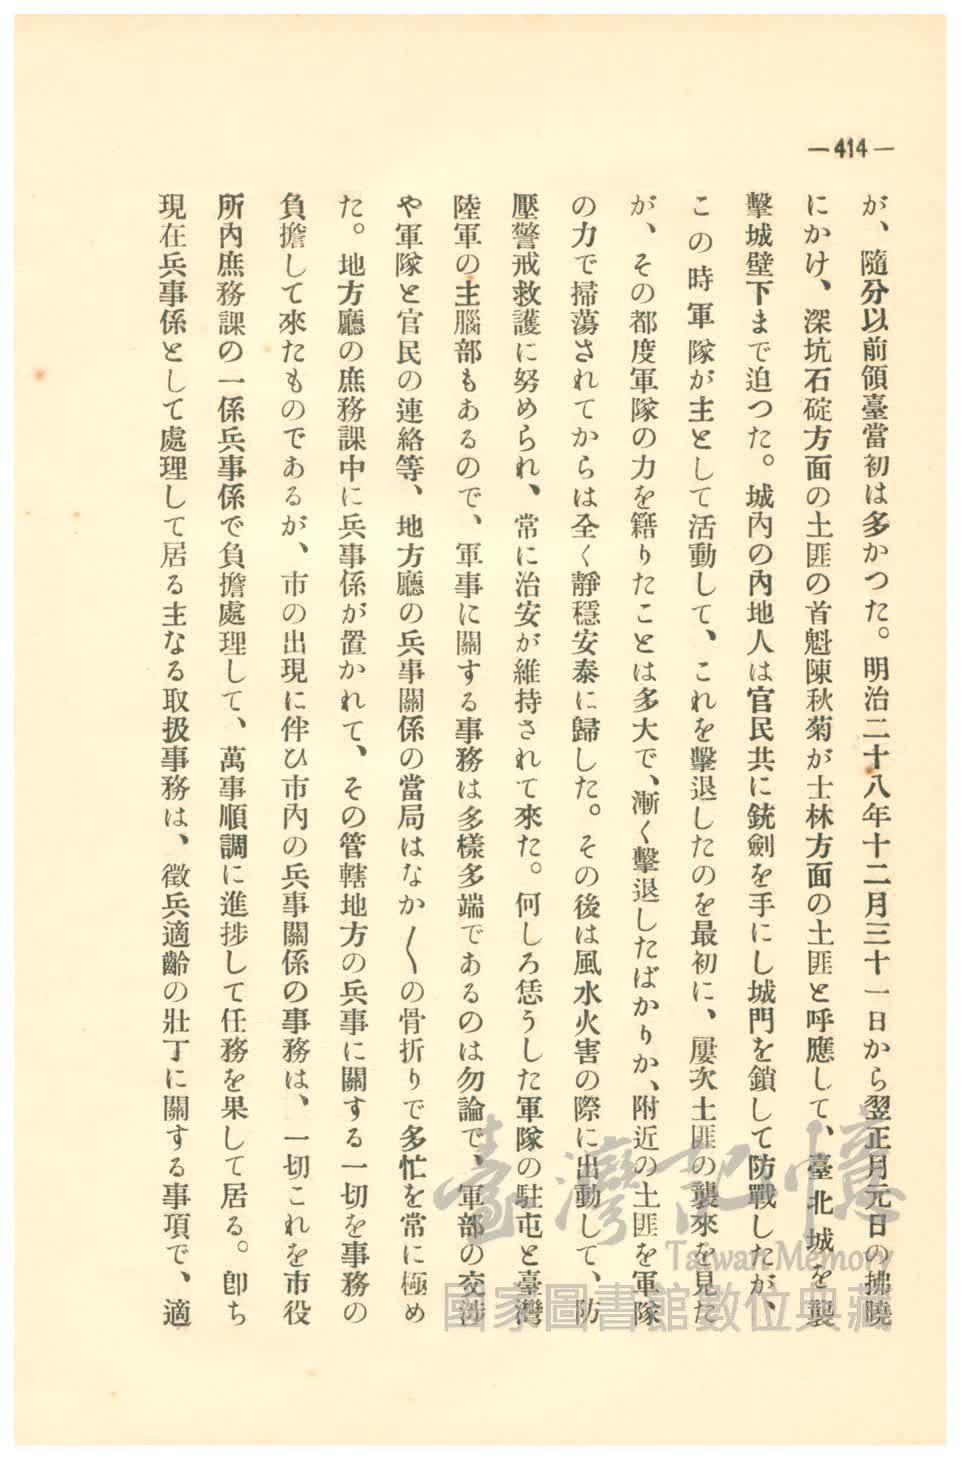 —414—
が、隨分以前領臺當初は多かつた。明治二十八年十二月三十一日から翌正月元日の拂曉
にかけ、深坑石碇方面の土匪の首魁陳秋菊が士林方面の土匪と呼應して、臺北城を襲
擊城壁下まで迫つた。城內の內地人は官民共に銃劍を手にし城門を鎖して防戰したが、
この時軍隊が主として活動して、これを擊退したのを最初に、屢次土匪の襲來を見た
が、その都度軍隊の力を籍りたことは多大で、漸く擊退したばかりか、附近の土匪を軍隊
の力で掃蕩されてからは全く靜穩安泰に歸した。その後は風水火害の際に出動して、防
壓警戒救護に努められ、常に治安が維持されて來た。何しろ恁うした軍隊の駐屯と臺灣
陸軍の主腦部もあるので、軍事に關する事務は多樣多端であるのは勿論で、軍部の交涉
や軍隊と官民の連絡等、地方廳の兵事關係の當局はなか〱の骨折りで多忙を常に極め
た。地方廳の庶務課中に兵事係が置かれて、その管轄地方の兵事に關する一切を事務の
負擔して來たものであるが、市の出現に伴ひ市內の兵事關係の事務は、一切これを市役
所內庶務課の一係兵事係で負擔處理して、萬事順調に進捗して任務を果して居る。卽ち
現在兵事係として處理して居る主なる取扱事務は、徵兵適齡の壯丁に關する事項で、適
臺灣記憶
Taiwan Memory
國家圖書館數位典藏